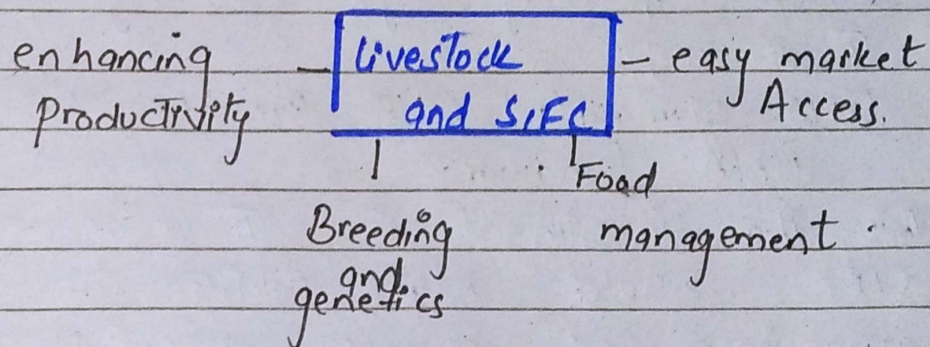 enhancing
Productivity
Livestock
and SIFC
easy market
Access.
Breeding
and
genetics
Food
management